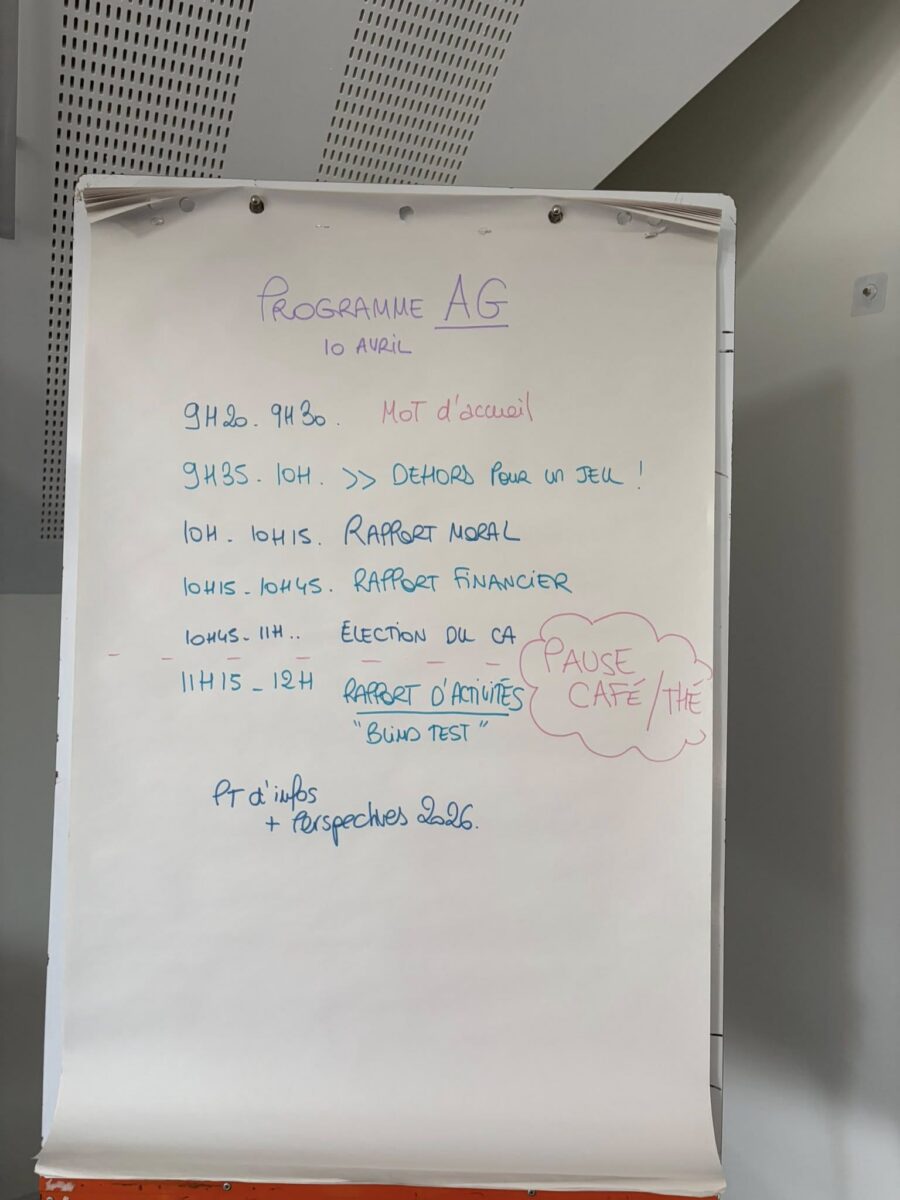 PROGRAMME AG
10 AVRIL
9H20. 9H30. MOT d'accueil
9H35. 10H. >> DEHORS POUR UN JEU !
10H - 10H15. RAPPORT MORAL
10H15 - 10H45. RAPPORT FINANCIER
10H45 - 11H.. ÉLECTION DU CA
PAUSE
CAFÉ/THÉ
11H15 - 12H RAPPORT D'ACTIVITÉS
"BLIND TEST"
PT d'infos
+ Perspectives 2026.